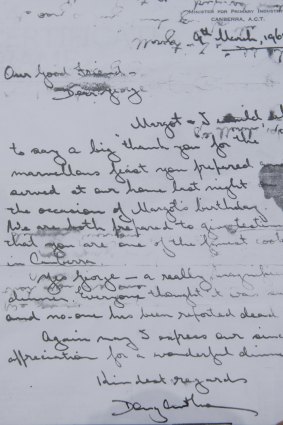 MINISTER FOR PRIMARY INDUST
CANBERRA, A.C.T.
9th March, 196
Our good friend
Dear George
Margot & I would
to say a big "thank you" for the
marvellous feast you prepared
served at our home last night
the occasion of Margot's birthday.
We are both prepared to
that you are one of the finest cooks
in Canberra
Yes George — a really
dinner. Everyone thought it was
and no-one has been reported dead
Again may I express our sinc
appreciation for a wonderful dinne
Kindest regards